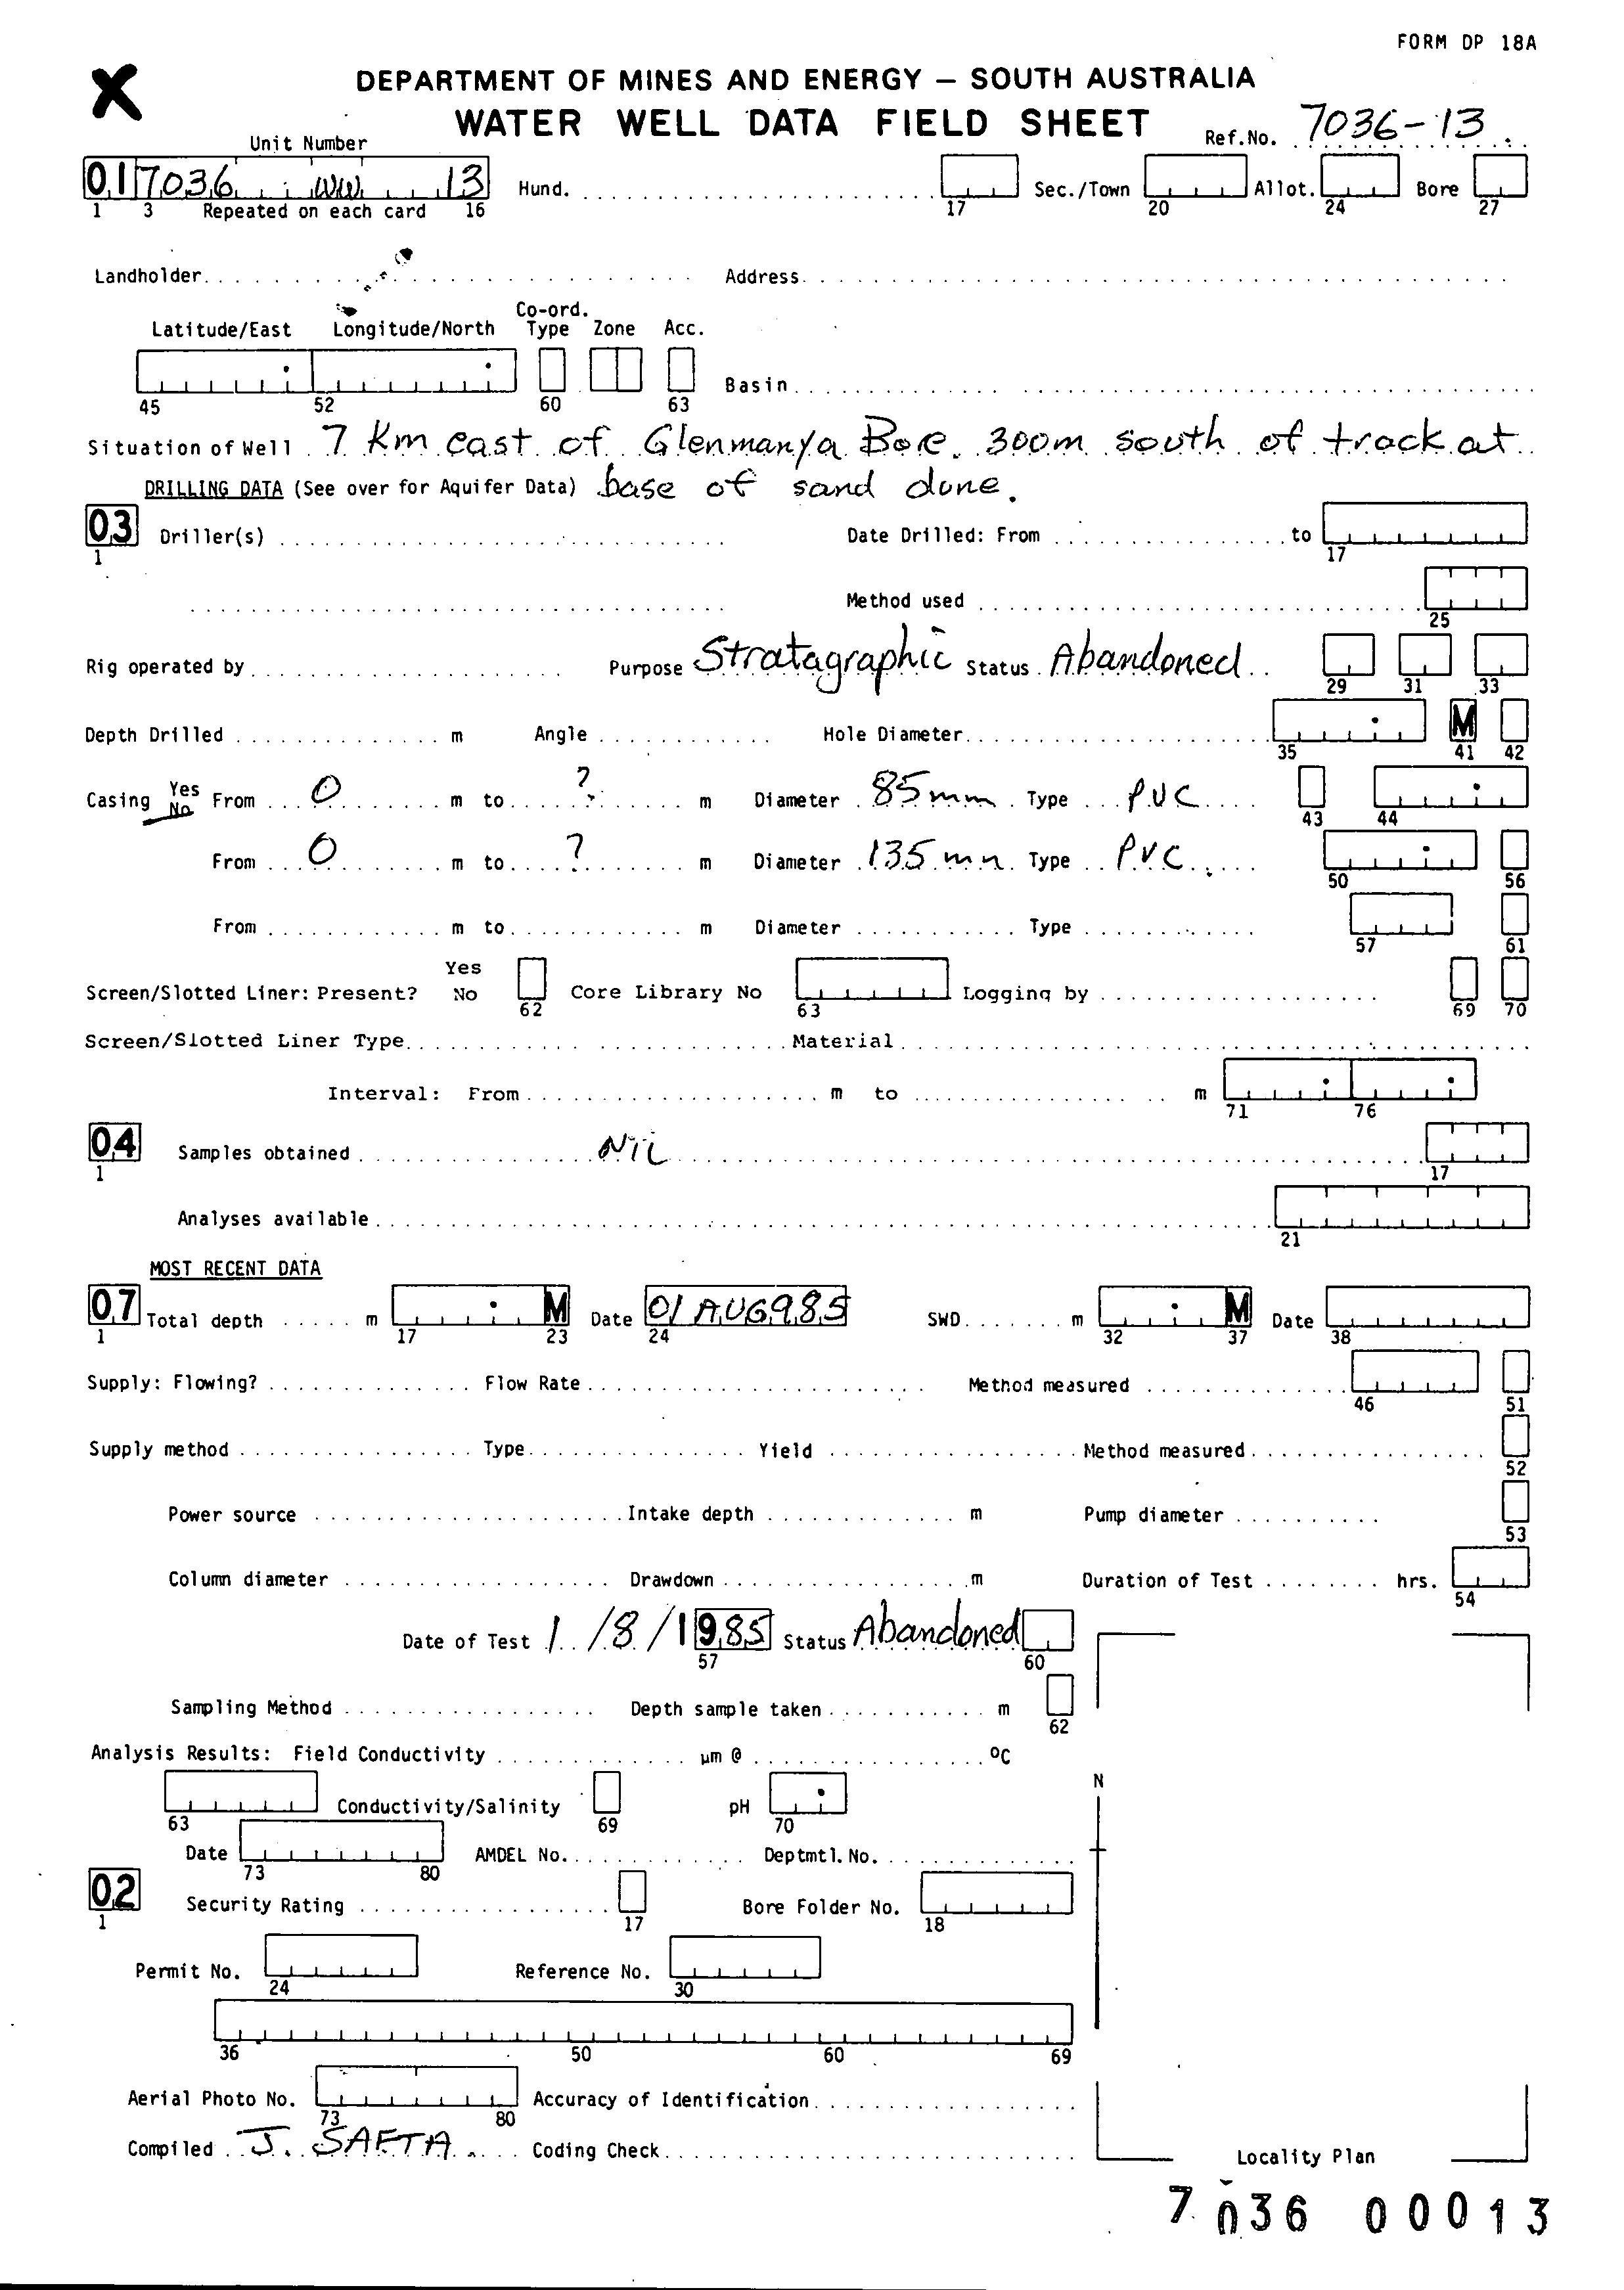 FORM DP 18A
X
DEPARTMENT OF MINES AND ENERGY — SOUTH AUSTRALIA
WATER WELL DATA FIELD SHEET Ref.No. 7036-13
Unit Number
01 7036 WW 13 Hund. Sec./Town Allot. Bore
1 3 Repeated on each card 16 17 20 24 27
Landholder Address
Co-ord.
Latitude/East Longitude/North Type Zone Acc.
Basin
45 52 60 63
Situation of Well 7 km east of Glenmanya Bore. 300m south of track at
DRILLING DATA (See over for Aquifer Data) base of sand dune.
03 Driller(s) Date Drilled: From to
1 17
Method used
25
Rig operated by Purpose Stratagraphic Status Abandoned
29 31 33
Depth Drilled m Angle Hole Diameter M
35 41 42
Casing Yes No From 0 m to ? m Diameter 85mm Type PVC
43 44
From 0 m to ? m Diameter 135 mm Type PVC
50 56
From m to m Diameter Type
57 61
Yes
Screen/Slotted Liner: Present? No Core Library No Logging by
62 63 69 70
Screen/Slotted Liner Type Material
Interval: From m to m
71 76
04 Samples obtained Nil
1 17
Analyses available
21
MOST RECENT DATA
07 Total depth m M Date 01AUG985 SWD m M Date
1 17 23 24 32 37 38
Supply: Flowing? Flow Rate Method measured
46 51
Supply method Type Yield Method measured
52
Power source Intake depth m Pump diameter
53
Column diameter Drawdown m Duration of Test hrs.
54
Date of Test 1/8/1985 Status Abandoned
57 60
Sampling Method Depth sample taken m
62
Analysis Results: Field Conductivity µm @ °C
N
Conductivity/Salinity pH
63 69 70
Date AMDEL No. Deptmtl. No.
73 80
02 Security Rating Bore Folder No.
1 17 18
Permit No. Reference No.
24 30
36 50 60 69
Aerial Photo No. Accuracy of Identification
73 80
Compiled J. SAFTA. Coding Check
Locality Plan
7036 00013